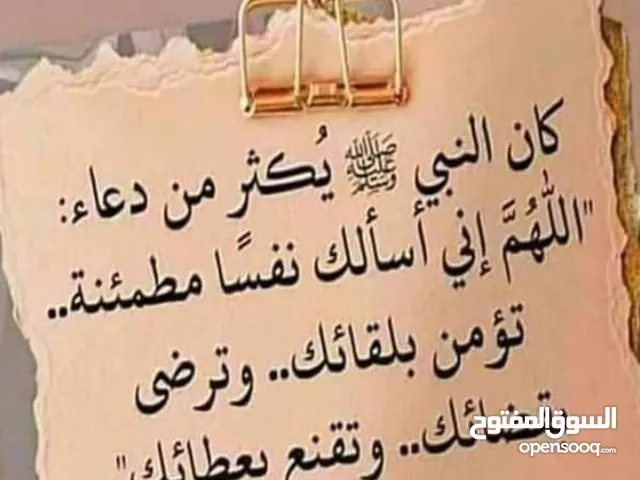 كان النبي ﷺ يُكثر من دعاء:
"اللهُمَّ إني أسألك نفسًا مطمئنة..
تؤمن بلقائك.. وترضى
بقضائك.. وتقنع بعطائك"
السوق المفتوح
opensooq.com